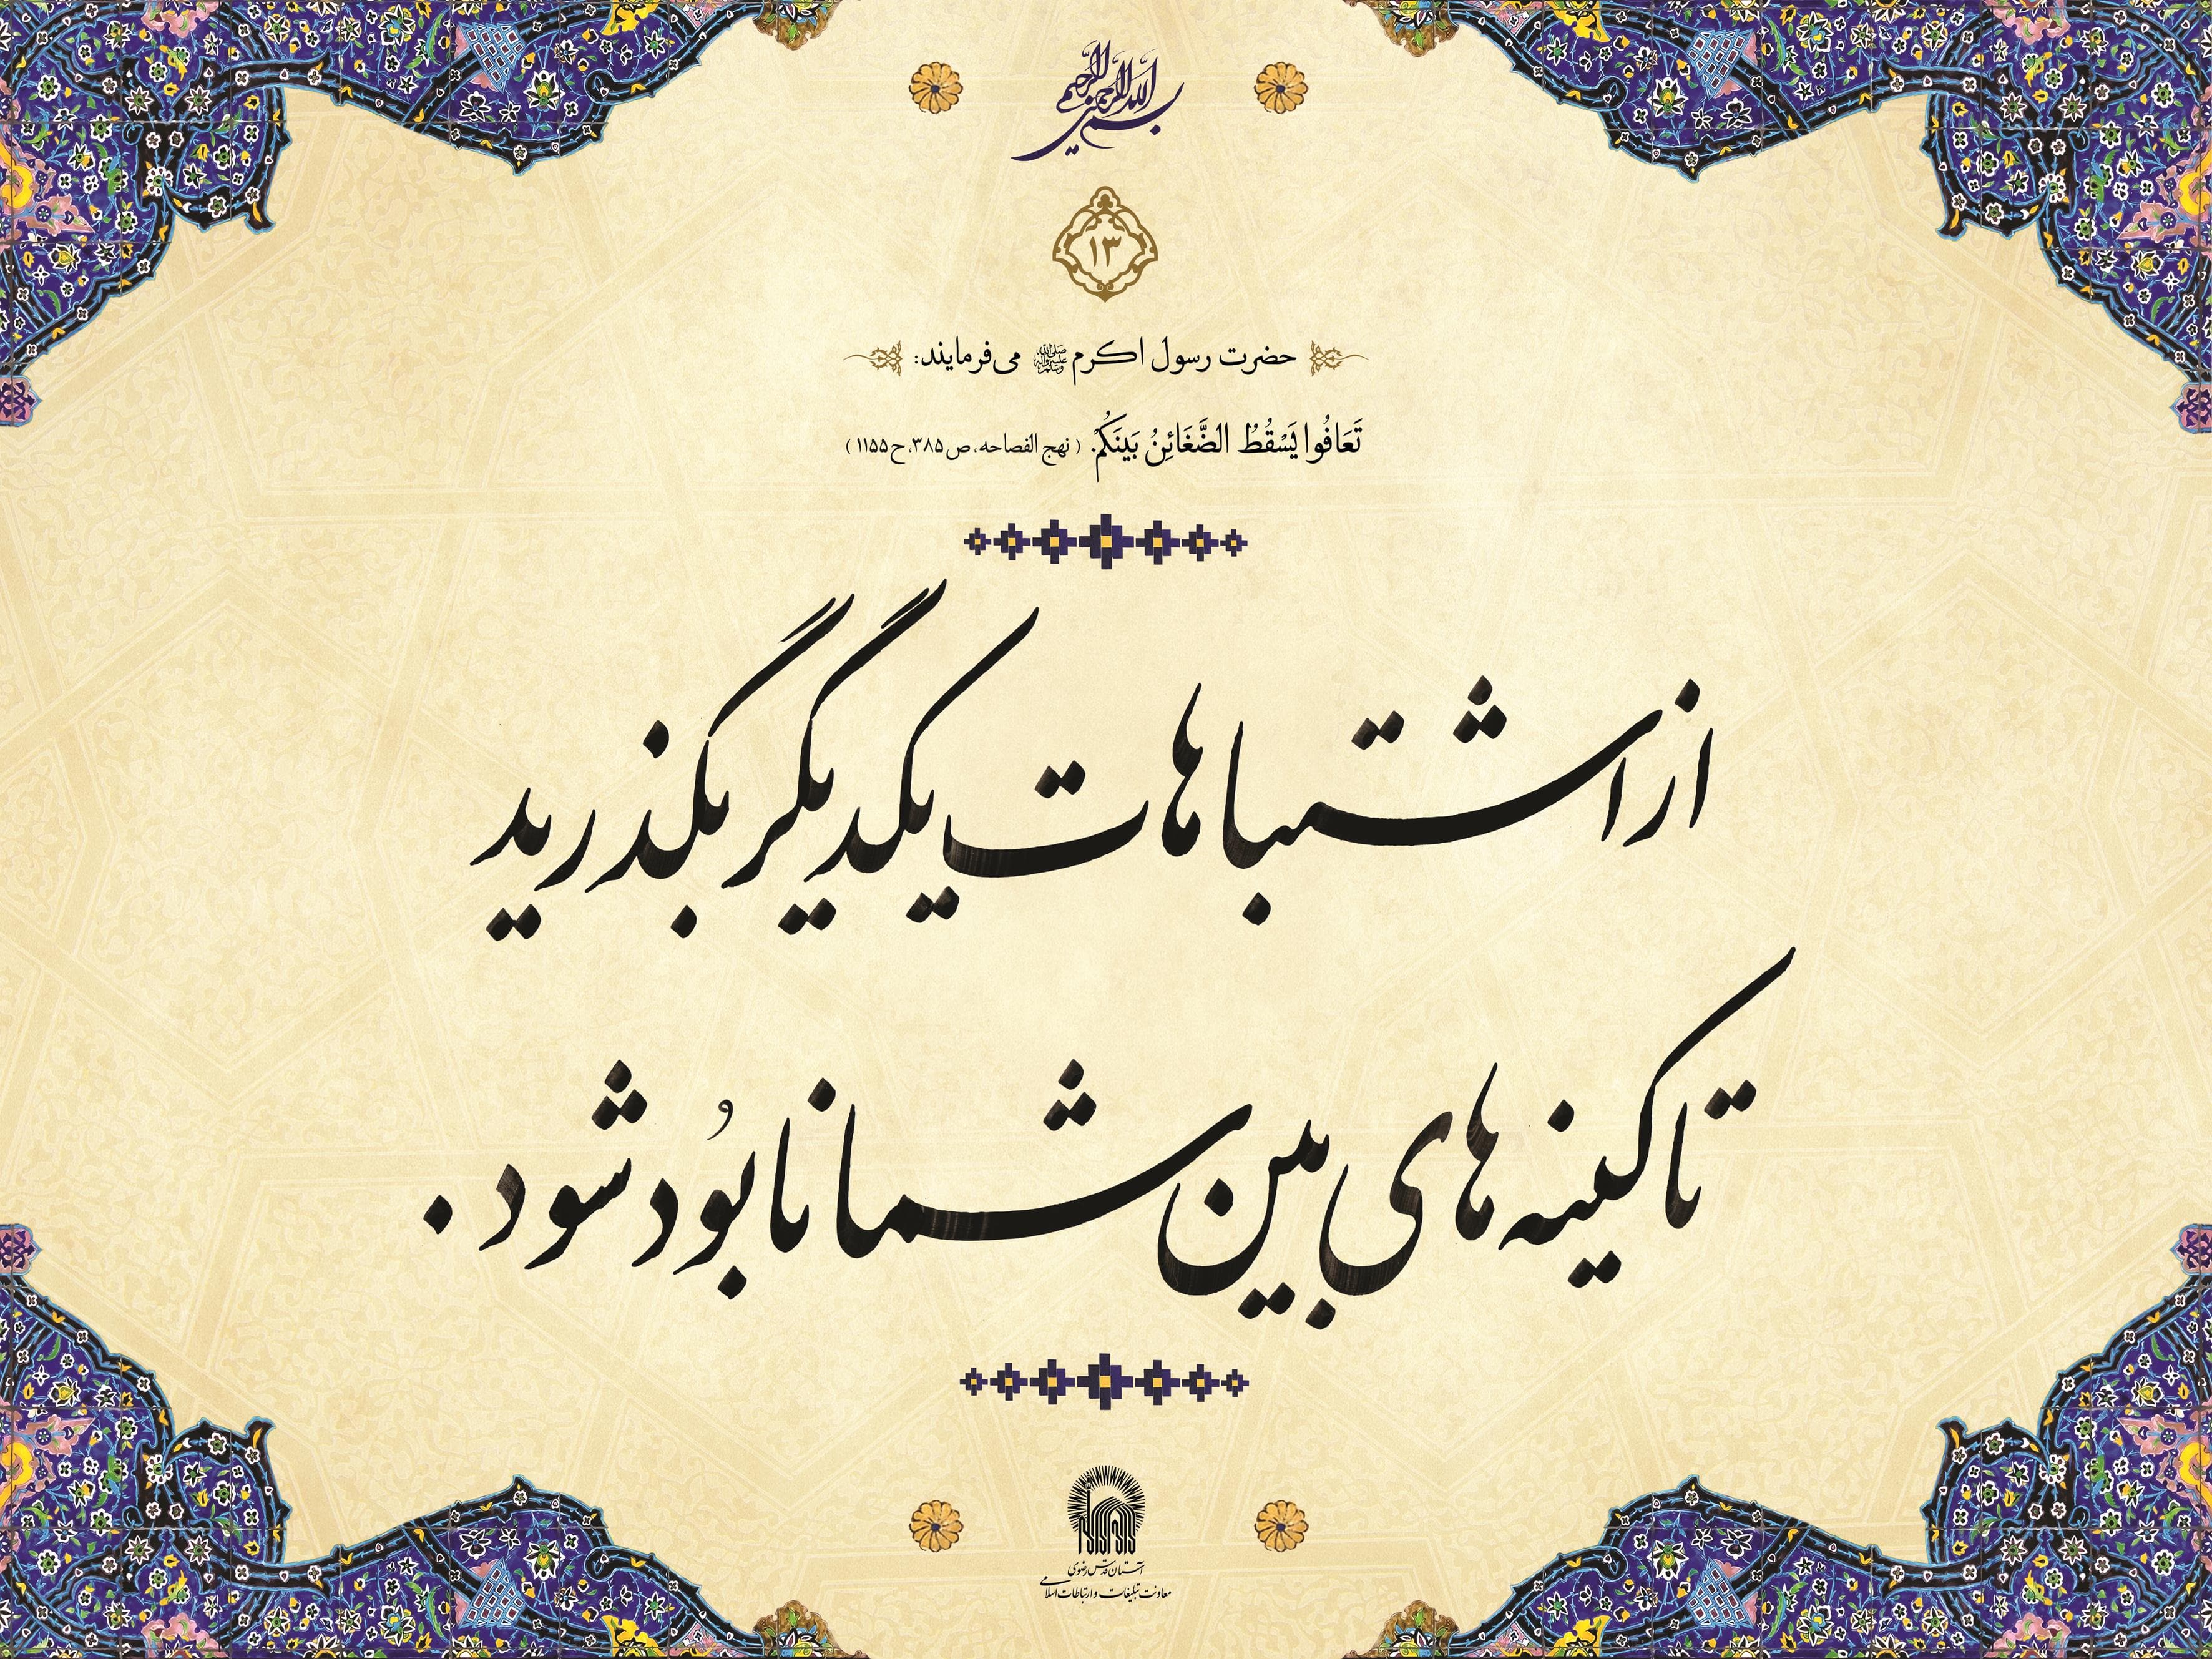 بسم الله الرحمن الرحیم
۱۳
حضرت رسول اکرم ﷺ می‌فرمایند:
تَعَافُوا یَسْقُطُ الضَّغَائِنُ بَینَکُمْ. ( نهج الفصاحه، ص ۳۸۵، ح ۱۱۵۵ )
از اشتباهات یکدیگر بگذرید
تا کینه های بین شما نابُود شود .
آستان قدس رضوی
معاونت تبلیغات و ارتباطات اسلامی